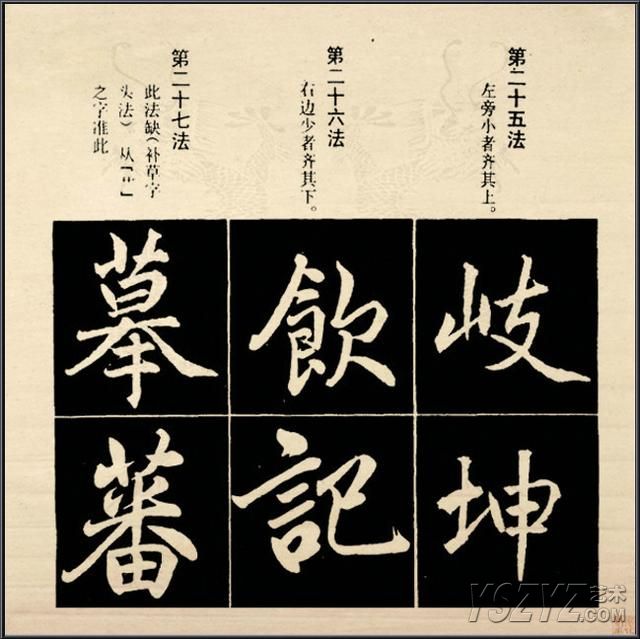 第二十五法
左旁小者齐其上。
岐
坤
第二十六法
右边少者齐其下。
飲
記
第二十七法
此法缺(补草字
头法)从【艹】
之字准此
摹
蕃
YSZYZ艺术
.COM